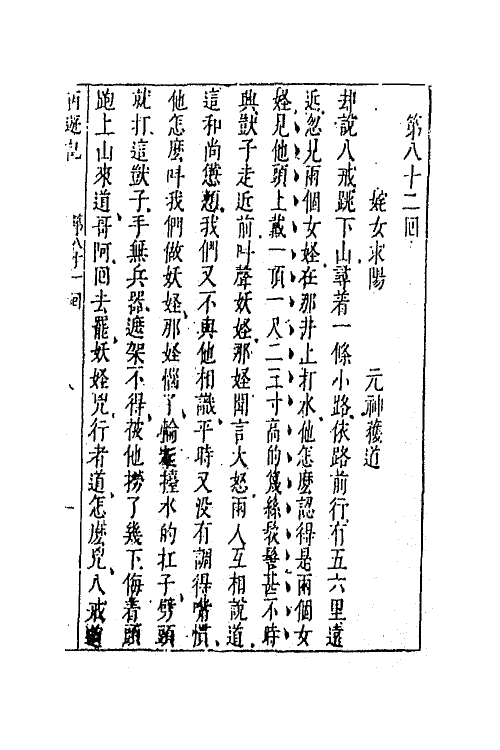 第八十二回
姹女求陽　元神護道
却說八戒跳下山尋着一條小路依路前行有五六里遠
近忽見兩個女怪在那井上打水他怎麽認得是兩個女
怪見他頭上戴一頂一尺二三寸高的篾絲䯼髻甚不時
與獃子走近前叫聲妖怪那怪聞言大怒兩人互相說道
這和尚憊懶我們又不與他相識平時又没有調得嘴慣
他怎麽叫我們做妖怪那怪惱了輪起擡水的杠子劈頭
就打這獃子手無兵器遮架不得被他撈了幾下侮着頭
跑上山來道哥阿回去罷妖怪兇行者道怎麽兇八戒道
西遊記　第八十一回　八